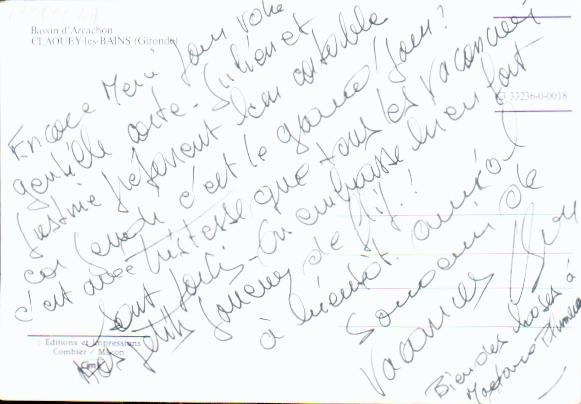 Bassin d'Arcachon
CLAOUEY-les-BAINS (Gironde)
33236-0-0018
Encore Merci pour votre
gentille carte - et
Justine préparent leur cartable
car lundi c'est le grand jour!
c'est avec tristesse que tous les vacanciers
sont partis - on embrasse bien fort
Mes petits joueurs de
à bientôt. amical
Souvenir de
Vacances
Bien des choses à
Editions et Impressions
Combier / Macon
Cim